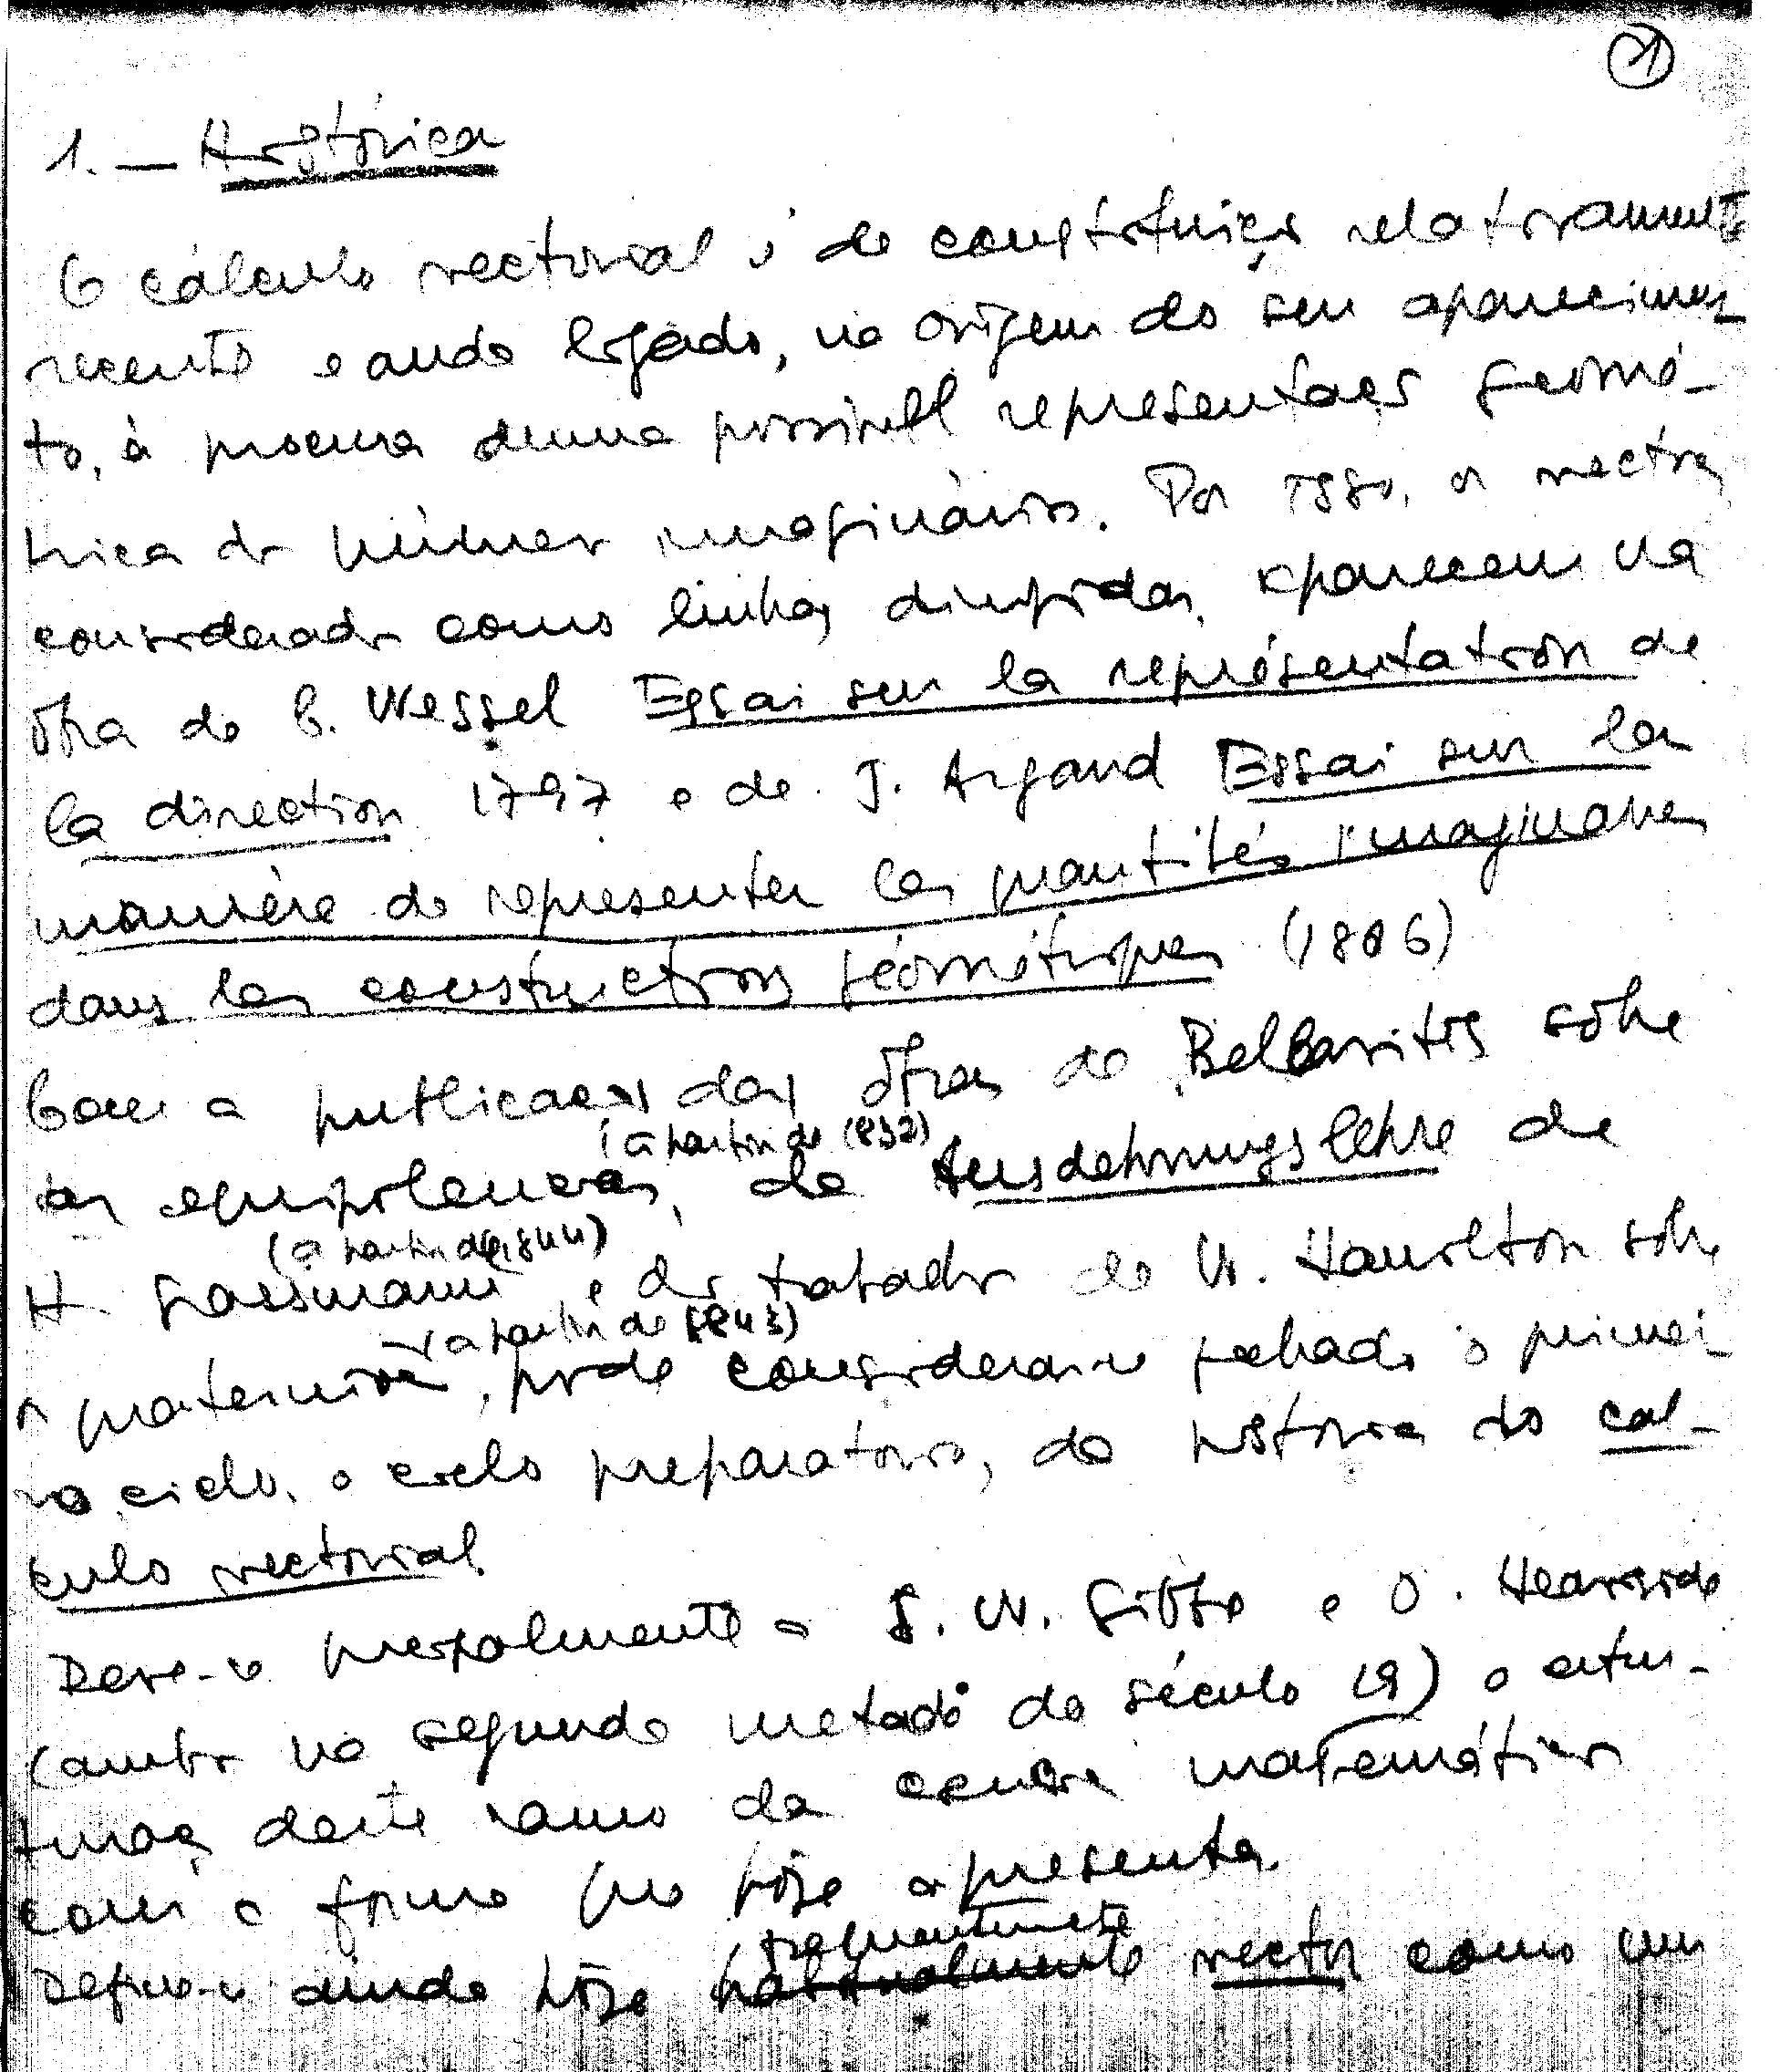 1
1. — Histórica
O cálculo vectorial é de constituição relativamente
recente e anda ligado, na origem do seu aparecimen-
to, à procura duma possivel representação geomé-
trica dos números imaginários. Por isso, os vectores,
considerados como linhas dirigidas, aparecem na
obra de C. Wessel Essai sur la représentation de
la direction 1797 e de J. Argand Essai sur la
manière de representer les quantités imaginaires
dans les constructions géométriques (1806)
Com a publicação das obras de Bellavitis sôbre
(a partir de 1832)
as equipolencias, da Ausdehnungslehre de
(a partir de 1844)
H. Grassmann e dos trabalhos de W. Hamilton sôbre
(a partir de 1843)
os quaterniões, pode considerar-se fechado o primei-
ro ciclo, o ciclo preparatório, da história do cál-
culo vectorial.
Deve-se principalmente a J. W. Gibbs e O. Heaviside
(ambos na segunda metade do século 19) a estru-
turação deste ramo da ciência matemática
com a forma que hoje apresenta.
frequentemente
Define-se ainda hoje habitualmente vector como um